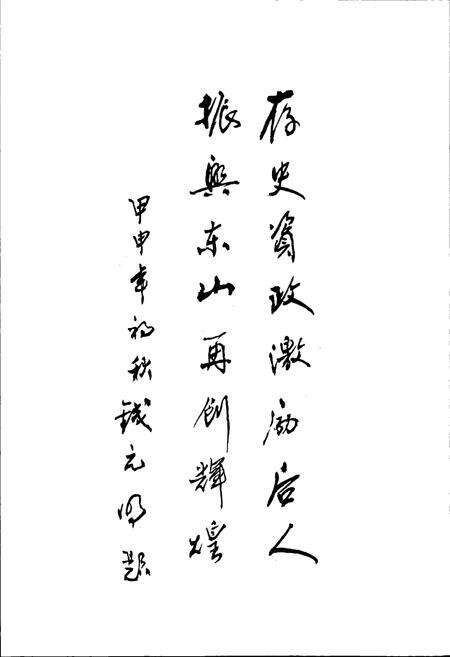 存史資政激励后人
振興东山再创輝煌
甲申年初秋钱元明题